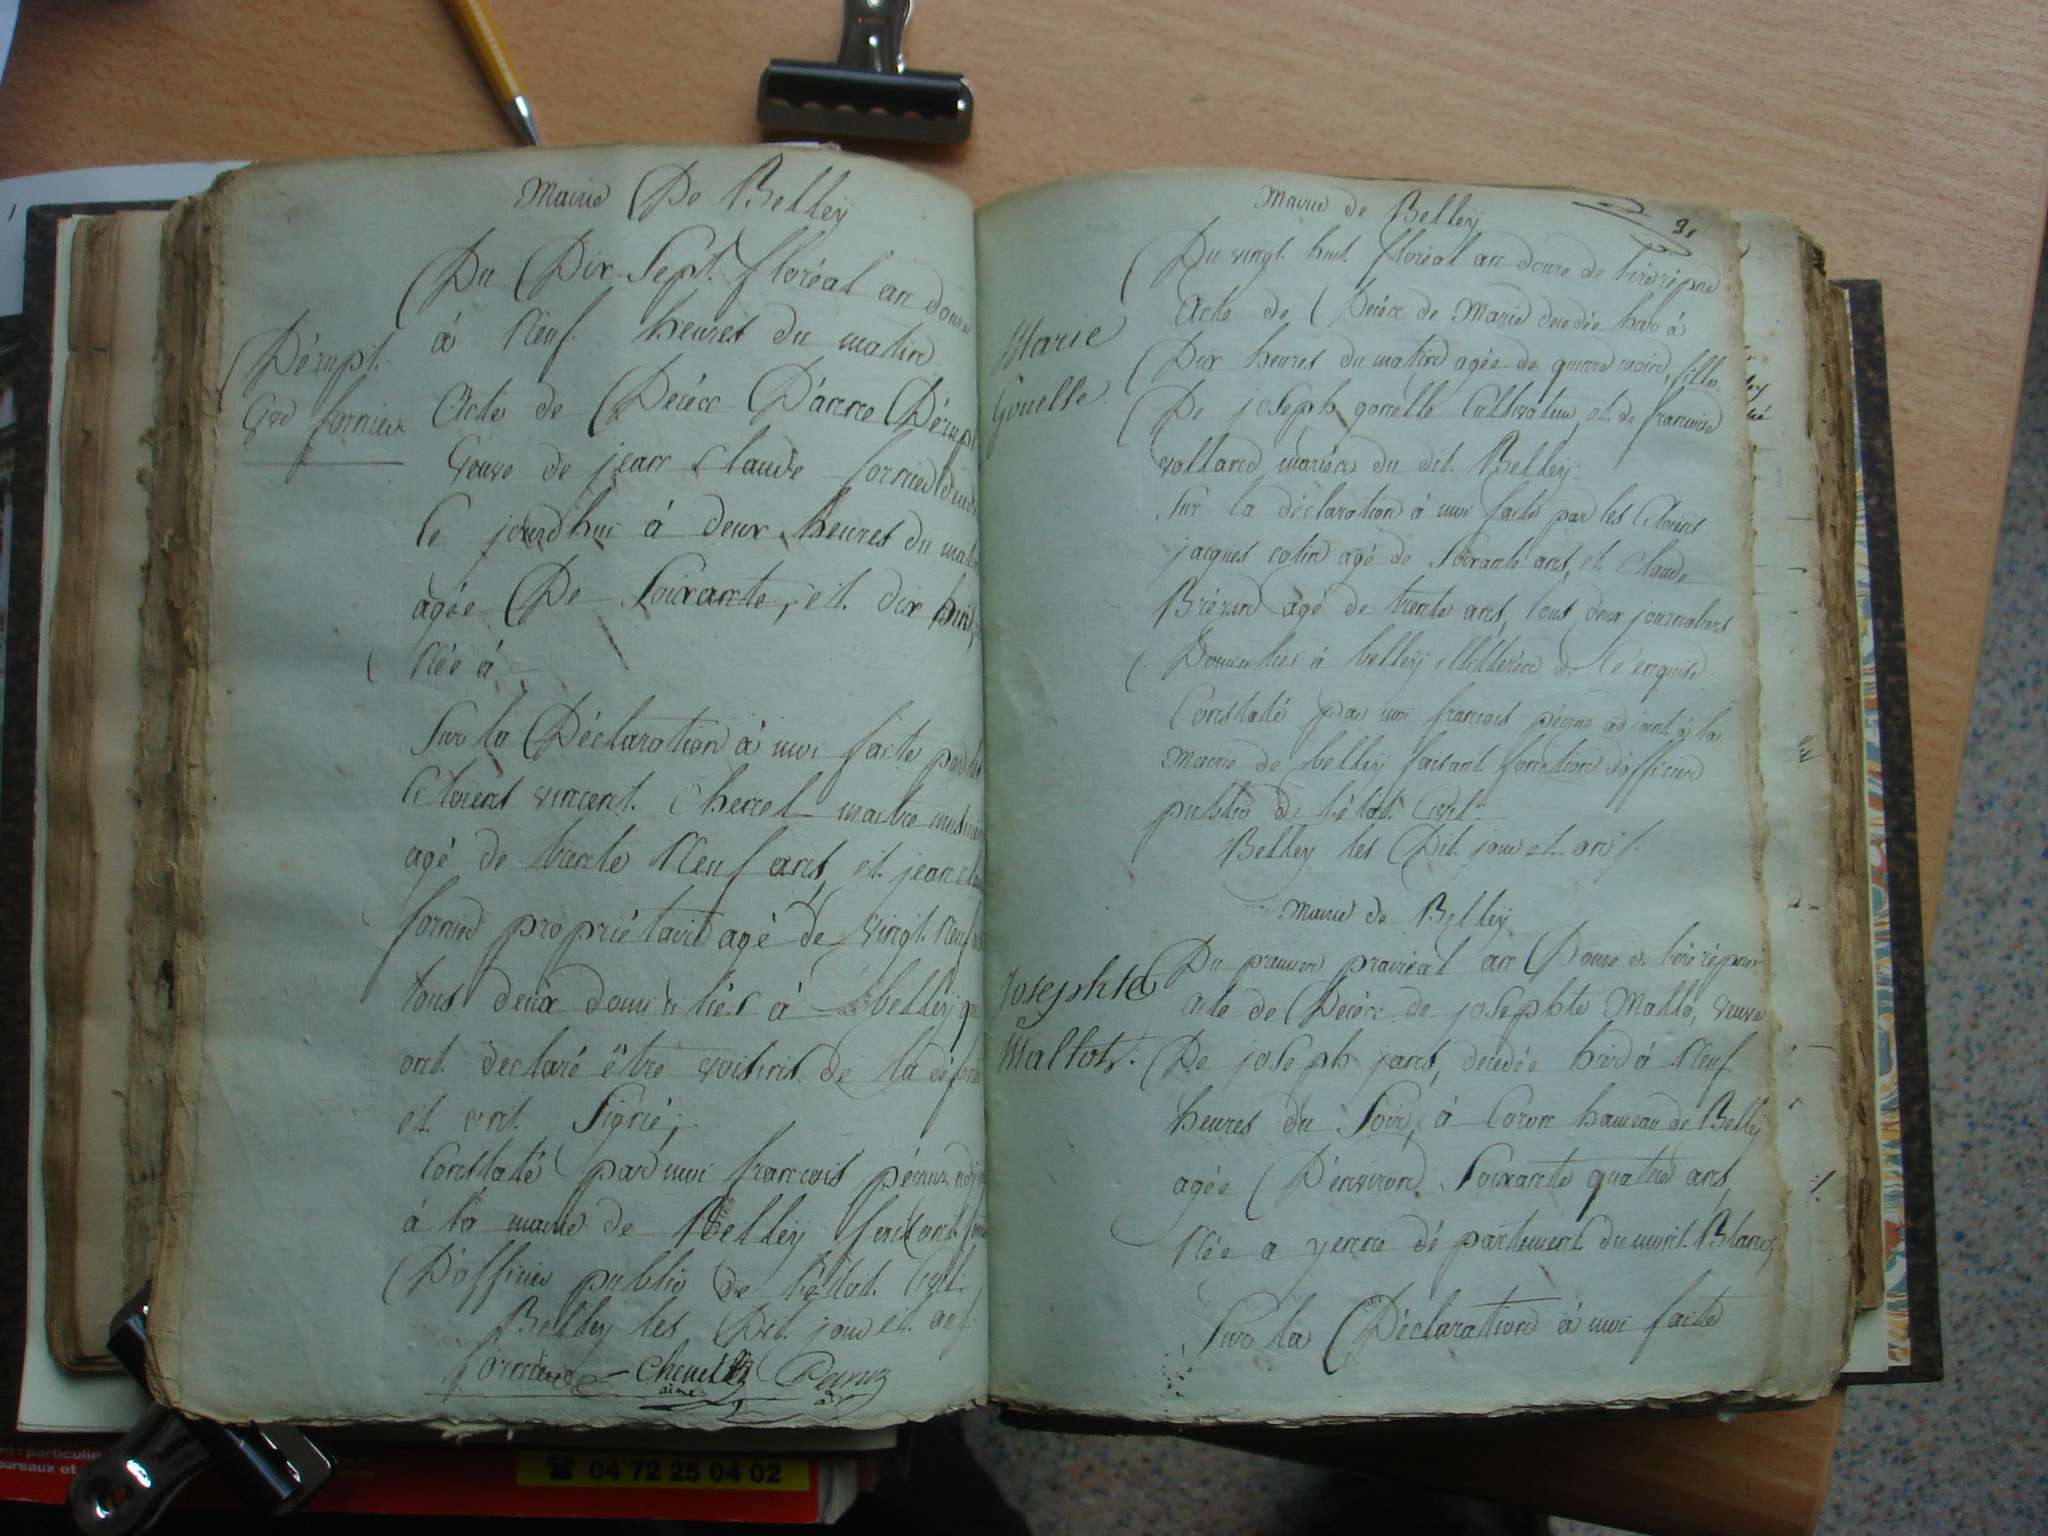 Mairie De Belley
Du Dix Sept floréal an douze
à Neuf heures du matin
Dérupt
vve fornier
Acte de Décéx D'anne Dérupt
veuve de jean claude fornier
Ce jourdhui à deux heures du matin
agée De Soixante, et dix huit,
Née à
Sur la Déclaration à moi faite par les
Citoiens vincent Chenel maitre
agé de trente Neuf ans, et jean
fornier propriétaire agé de vingt Neuf
tous deux domiciliés à belley qui
ont déclaré être voisins de la
et ont Signé;
Constaté par moi françois pérruz
à la mairie de Belley faisant
D'officier public de l'état Civil
Belley les Dit jour et an
fornier Peruz
ainé
Mairie de Belley
31
Du vingt huit floréal an douze de l'ère répne
Marie
Gonelle
Acte de Décéx de Marie décédée hier à
Dix heures du matin agée de quinze mois, fille
De joseph gonelle Cultivateur, et de françoise
volland, mariéx du dit Belley
Sur la déclaration à moi faite par les Citoiens
jacques cotin agé de Soixante ans, et claude
Brézin agé de trente ans, tous deux journaliers
Domiciliés à belley illitéréx de ce enquis
Constaté par moi françois péruz adjoint à la
Mairie de belley faisant fonction d'officier
public de l'état Civil
Belley les Dit jour et an
Mairie de Belley
Du premier prairéal an Douze de l'ère répne
Josephte
Mallot.
acte de Décéx de josephte Mallo, veuve
De joseph jans, décédée hier à Neuf
heures du Soir, à Coron hameau de Belley
agée D'environ Soixante quatre ans,
Née a yenne département du mont Blanc,
Sur la Déclaration à moi faite
: particulie
bureaux et
☎ 04 72 25 04 02